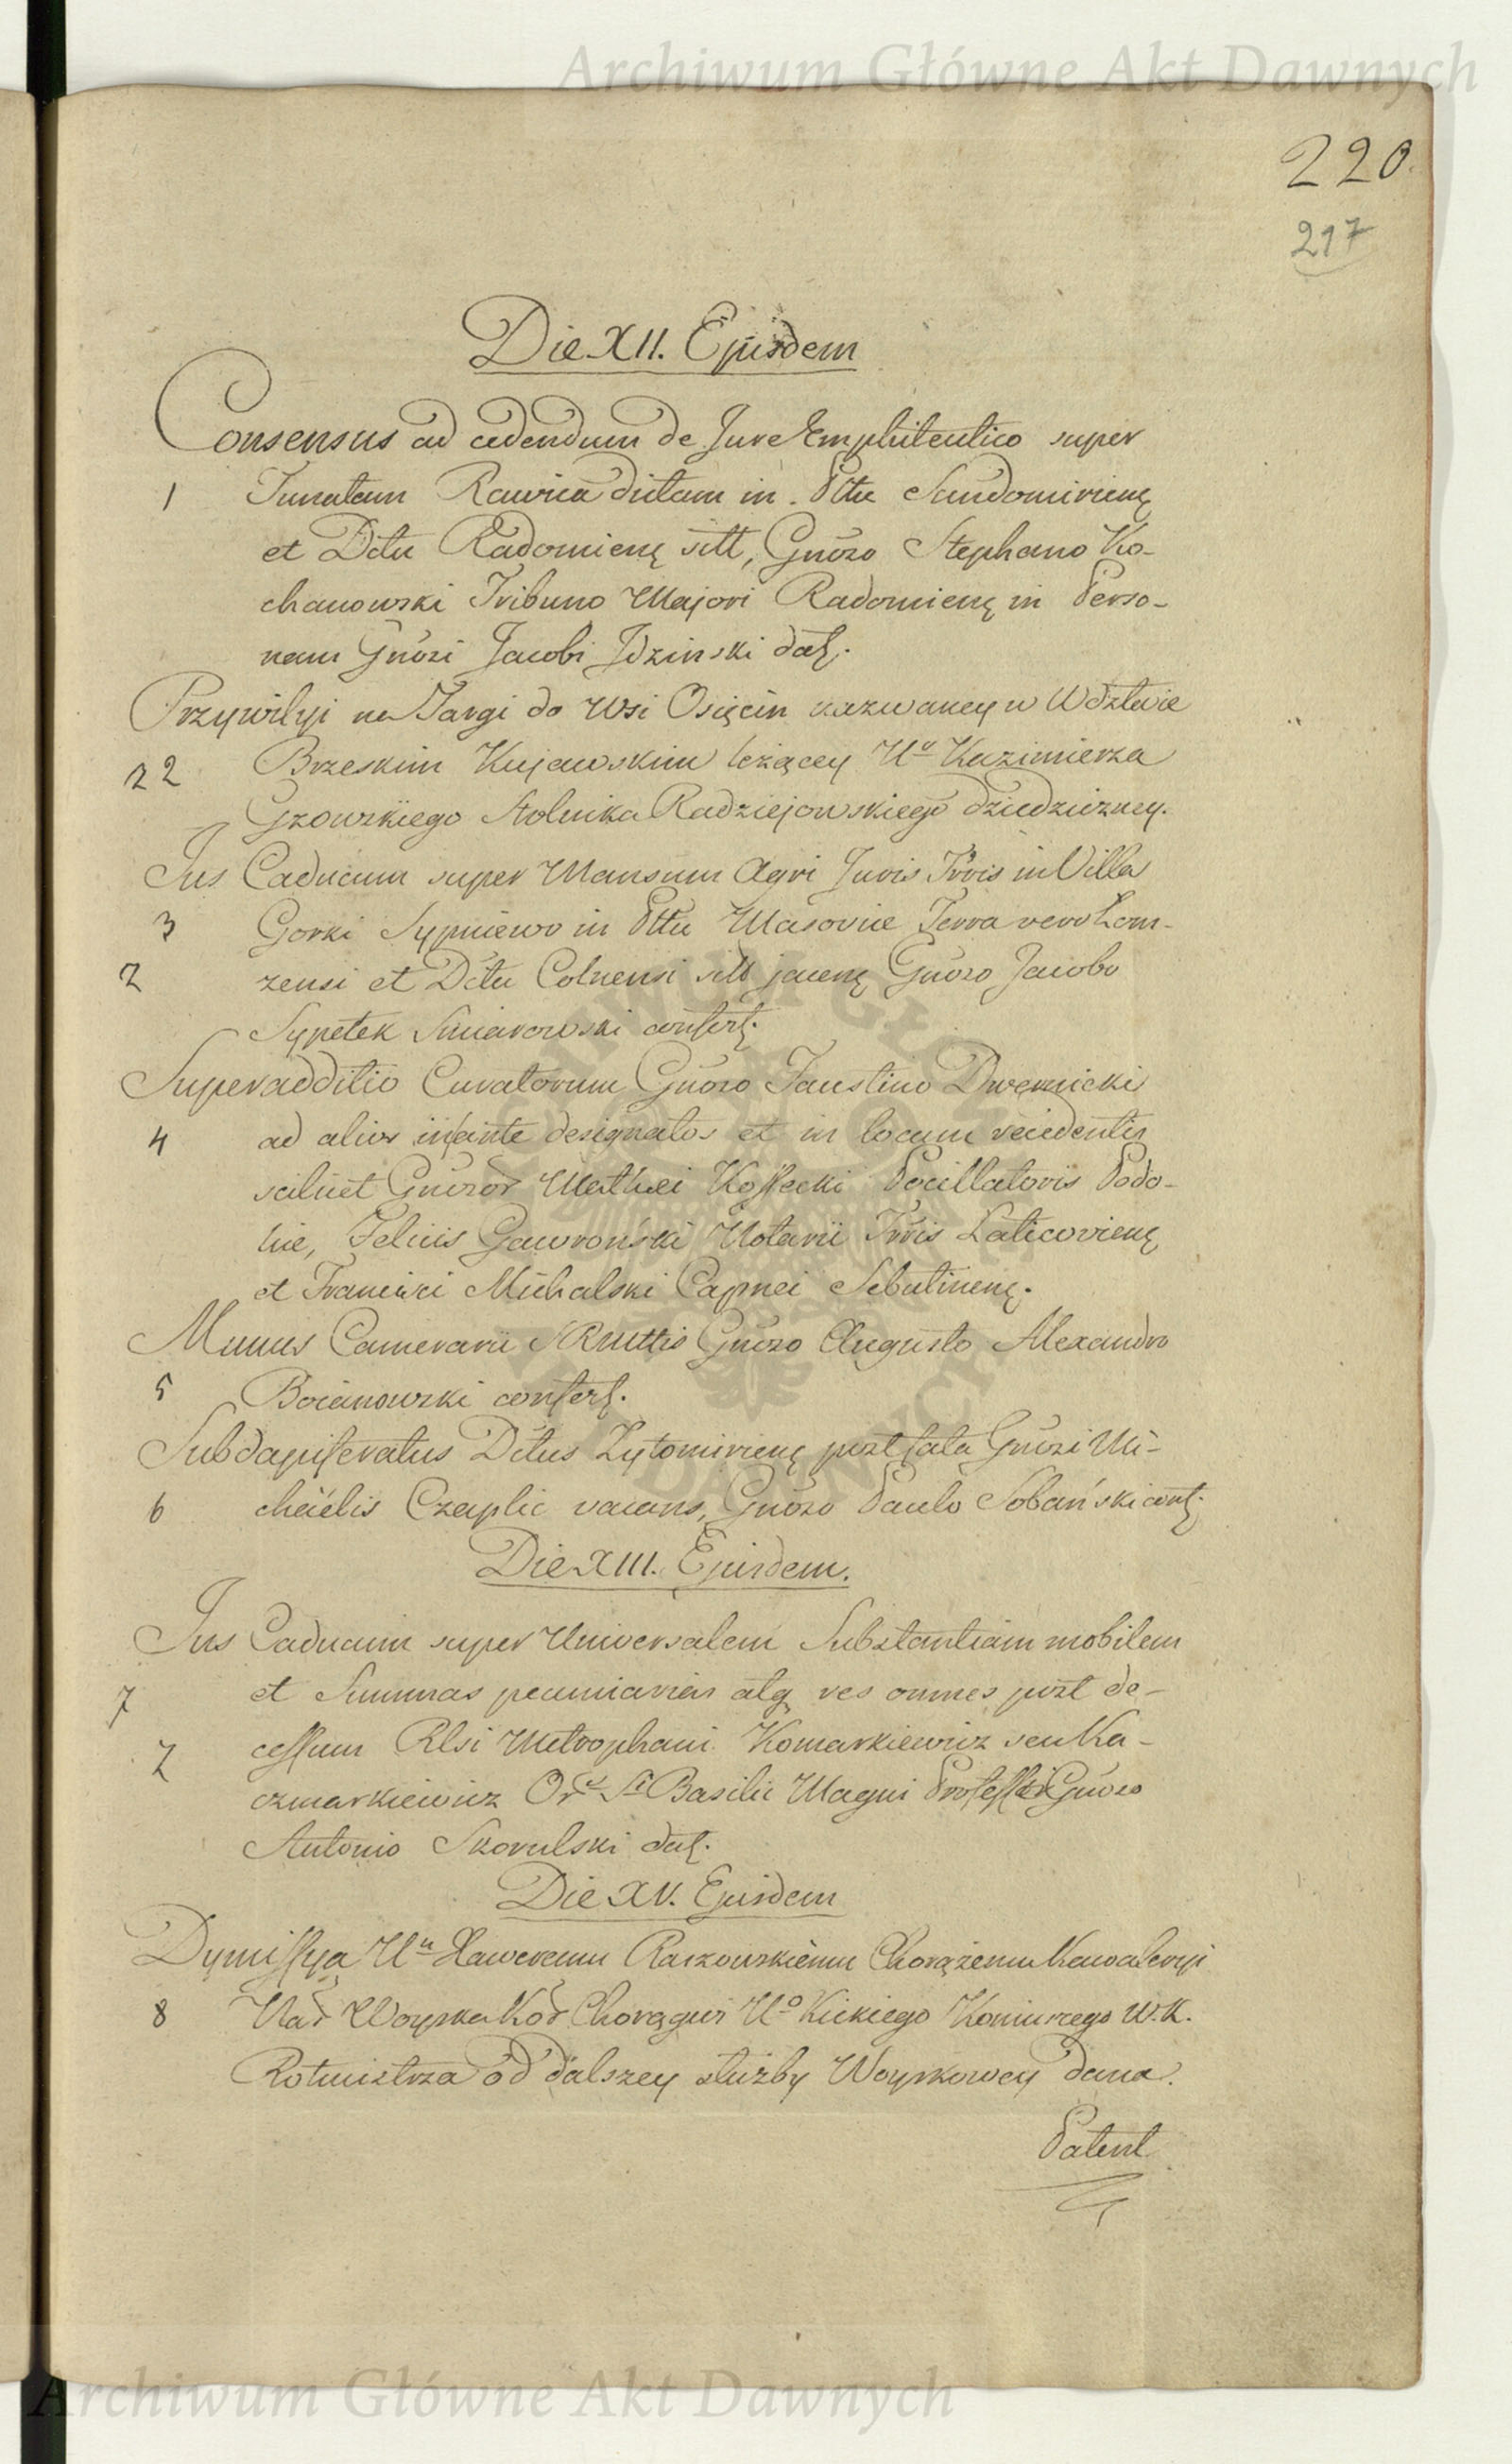 Archiwum Główne Akt Dawnych
220.
217
Die XII. Ejusdem
Consensus ad cedendum de Jure Emphiteutico super
1 Junatam Rawica dictam in Pttu Sandomirienę
et Dctu Radomienę sitt, Gnoso Stephano Ko-
chanowski Tribuno Majori Radomienę in Perso-
nam Gnosi Jacobi Jdzinski dat.
Przywilyi na Targi do Wsi Osięcin nazwaney w Wdztwie
2 2 Brzeskim Kujawskim leżącey Uo Kazimierza
Gzowskiego Stolnika Radziejowskiego dziedziczney.
Jus Caducum super Mansum Agri Juris Trris in Villa
3 Gorki Sypniewo in Pttu Masoviæ Terra vero Lom-
2 zensi et Dctu Colnensi sitt jacenę Gnoso Jacobo
Sypetek Smiarowski confert.
Superadditio Curatorum Gnoso Faustino Dwernicki
4 ad alios inante designatos et in locum recedentis
scilicet Gnosor Mathei Kossecki Pocillatoris Podo-
liæ, Felicis Gawroński Notarii Trris Laticovienę
et Francisci Michalski Capnei Sebutinenę.
Munus Camerarii SRMttis Gnoso Augusto Alexandro
5 Bojanowski confert.
Subdapiferatus Dctus Zytomirienę post fata Gnosi Mi-
6 chäelis Czaplic vacans, Gnoso Paulo Sobański conf.
Die XIII. Ejusdem.
Jus Caducum super Universalem Substantiam mobilem
7 et Summas pecuniarias atq res omnes post de-
2 cessum Rlsi Metrophani Komarkiewicz seu Ka-
czmarkiewicz Ord Sti Basilii Magni Professi Gnoso
Antonio Skorulski dat.
Die XV. Ejusdem
Dymissya Un Xaweremu Raszowskiemu Chorążemu Kawaleryi
8 Nar Woyska Kor Chorągwi Uo Kickiego Koniuszego W.K.
Rotmistrza od dalszey służby Woyskowey dana.
Patent
ARCHIWUM GŁÓWNE AKT DAWNYCH
Archiwum Główne Akt Dawnych